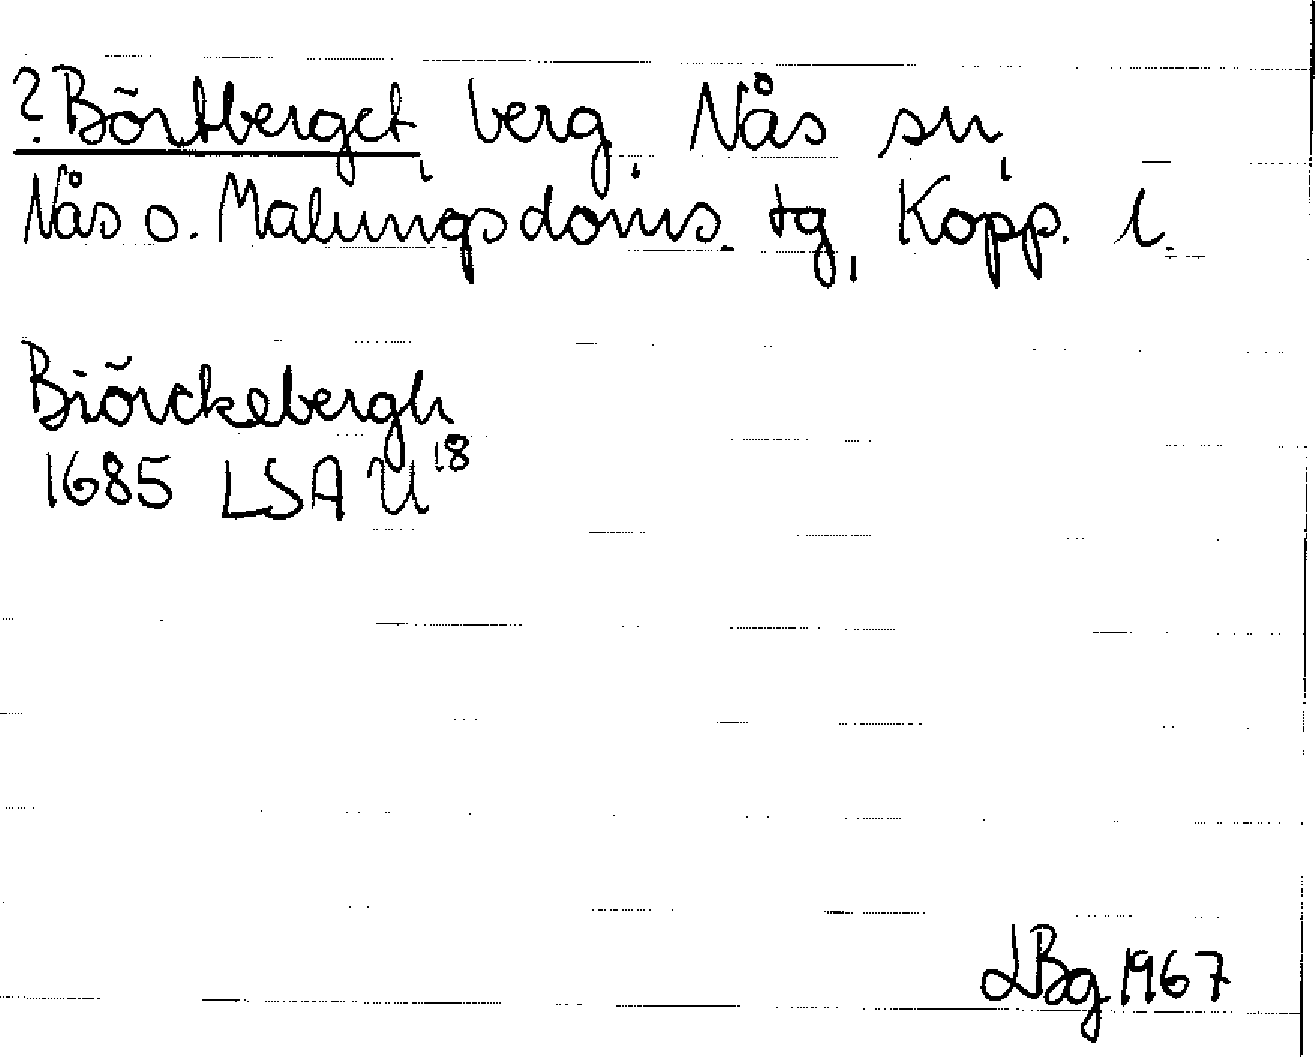 ?Börtberget, berg, Nås sn,
Nås o. Malungs doms. tg, Kopp. l.
Biörckebergh
1685 LSA U18
LBg 1967